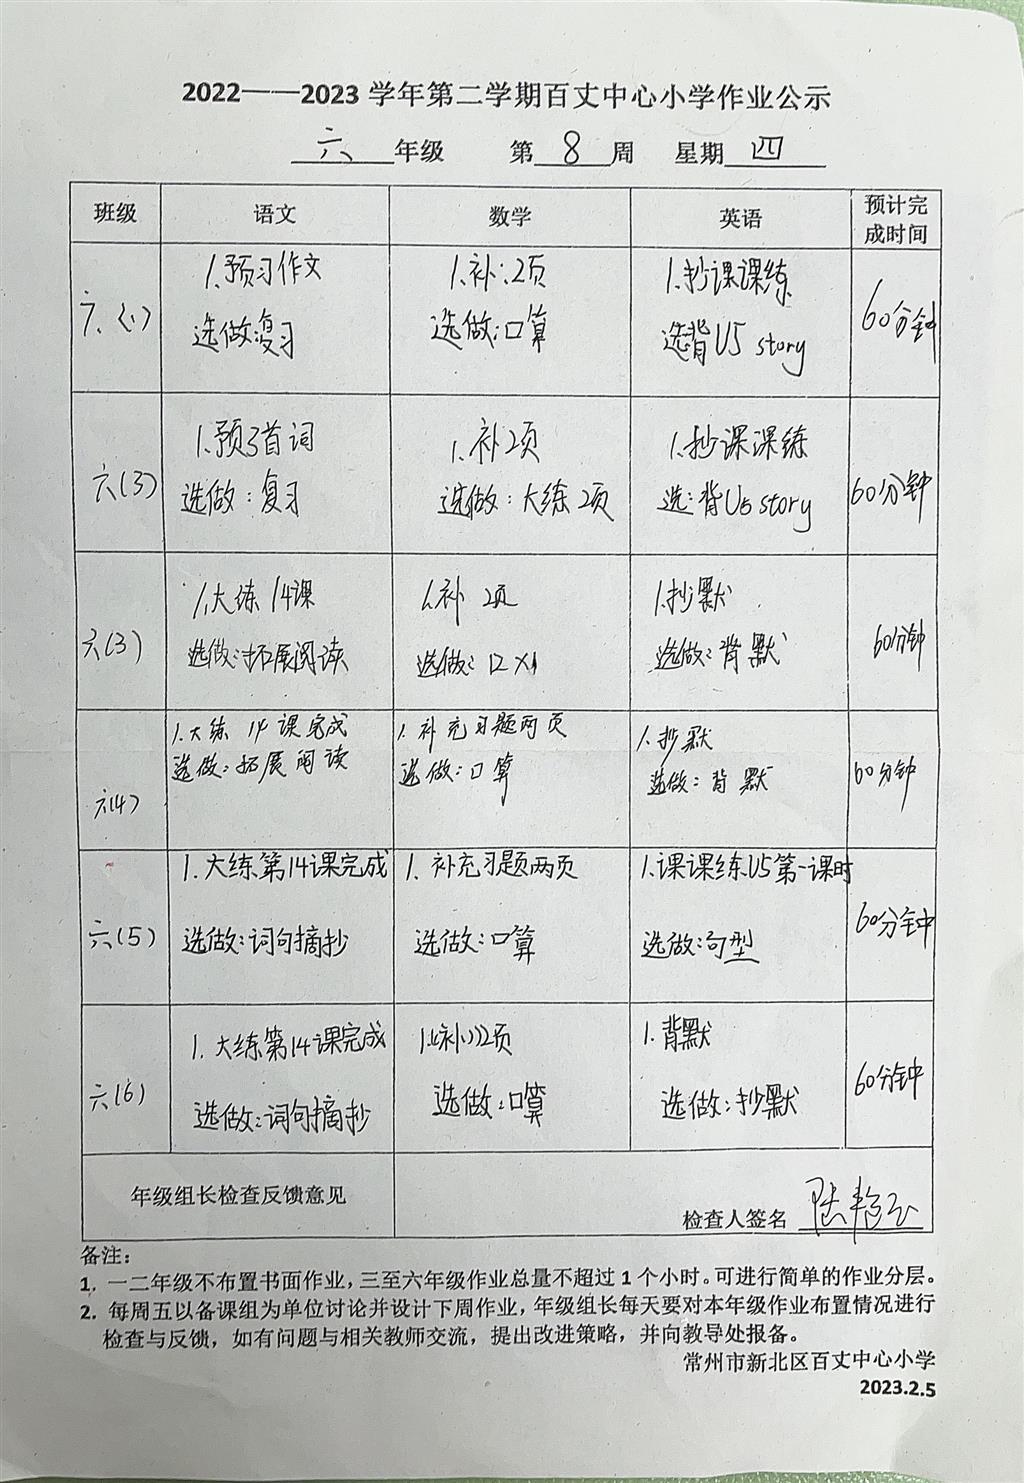 2022——2023 学年第二学期百丈中心小学作业公示
六 年级 第 8 周 星期 四
班级 语文 数学 英语 预计完成时间
六(1)
1.预习作文
选做:复习
1.补:2页
选做:口算
1.抄课课练
选背U5 story
60分钟
六(3)
1.预3首词
选做:复习
1.补2页
选做:大练2页
1.抄课课练
选:背U5 story
60分钟
六(3)
1.大练14课
选做:拓展阅读
1.补 2页
选做:
1.抄默
选做:背默
60分钟
六(4)
1.大练 14课完成
选做:拓展阅读
1.补充习题两页
选做:口算
1.抄默
选做:背默
60分钟
六(5)
1.大练第14课完成
选做:词句摘抄
1.补充习题两页
选做:口算
1.课课练U5第一课时
选做:句型
60分钟
六(6)
1.大练第14课完成
选做:词句摘抄
1.《补》2页
选做:口算
1.背默
选做:抄默
60分钟
年级组长检查反馈意见
检查人签名
备注:
1. 一二年级不布置书面作业,三至六年级作业总量不超过1个小时。可进行简单的作业分层。
2. 每周五以备课组为单位讨论并设计下周作业,年级组长每天要对本年级作业布置情况进行
检查与反馈,如有问题与相关教师交流,提出改进策略,并向教导处报备。
常州市新北区百丈中心小学
2023.2.5